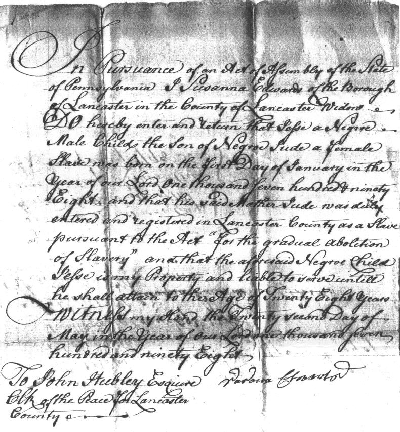 In Pursuance of an Act of Assembly of the State
of Pennsylvania I Susanna Edwards of the Borough
of Lancaster in the County of Lancaster Widow
Do hereby enter and return that Jesse a Negro
Male Child, the Son of Negroe Jude a female
Slave was born on the first Day of January in the
Year of our Lord One thousand seven hundred & ninety
Eight, and that his said Mother Jude was duly
entered and registered in Lancaster County as a Slave
pursuant to the Act "for the gradual abolition
of Slavery" and that the aforesaid Negroe Child
Jesse is my Property and liable to serve untill
he shall attain to the Age of Twenty Eight Years
Witness my Hand the Twenty second Day of
May in the Year of our Lord one thousand seven
hundred and ninety Eight
To John Hubley Esquire
Clk of the Peace for Lancaster
County